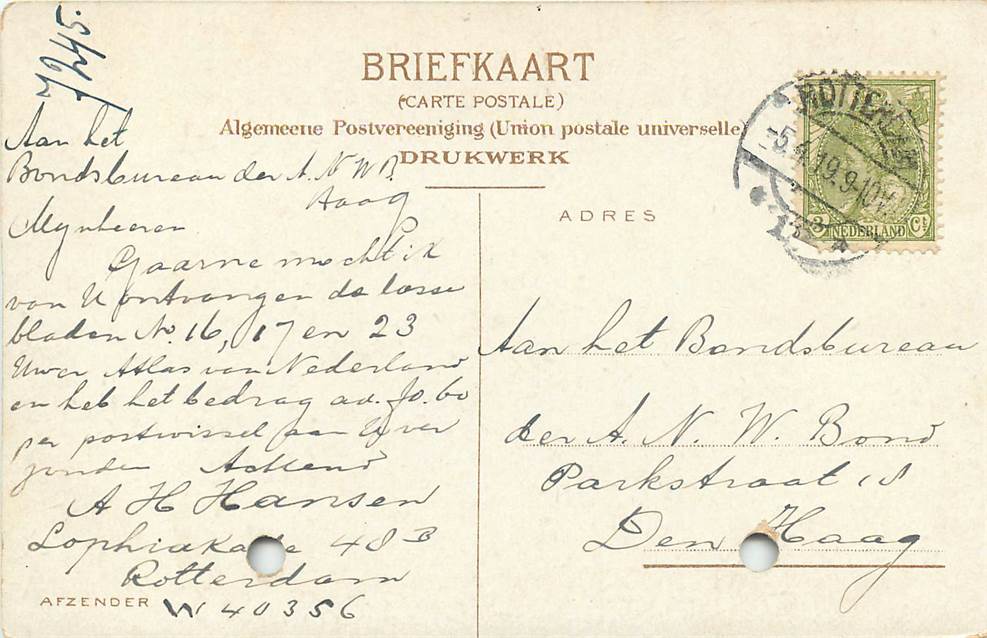 7245.
BRIEFKAART
(CARTE POSTALE)
Algemeene Postvereeniging (Union postale universelle)
DRUKWERK
Aan het
Bondsbureau der A. N. W. B.
Haag
Mijnheeren
Gaarne mocht ik
van U ontvangen de losse
bladen No. 16, 17 en 23
Uwer Atlas van Nederland
en heb het bedrag ad. fo. 60
per postwissel aan U over
zonden Achtend
A H Hansen
Sophiakade 48 B
Rotterdam
AFZENDER W 40356
ADRES
Aan het Bondsbureau
der A. N. W. Bond
Parkstraat 18
Den Haag
ROTTERDAM
-5.4.19.9-10V
3 Ct
NEDERLAND